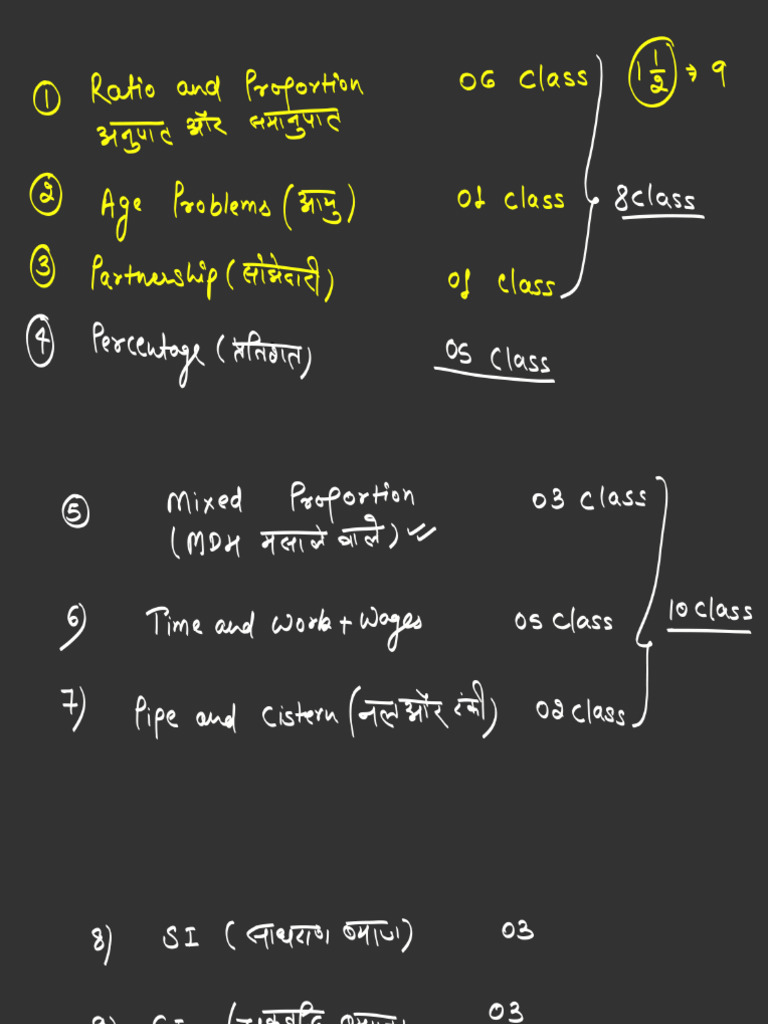 ① Ratio and Proportion 06 Class 1 1/2 → 9
अनुपात और समानुपात
② Age Problems (आयु) 01 Class 8 Class
③ Partnership (साझेदारी) 01 Class
④ Percentage (प्रतिशत) 05 Class
⑤ Mixed Proportion 03 Class
(MDH मसाले वाले) ✓✓
6) Time and Work + Wages 05 Class 10 Class
7) Pipe and Cistern (नल और टंकी) 02 Class
8) SI (साधारण ब्याज) 03
9) CI (चक्रवृद्धि ब्याज) 03